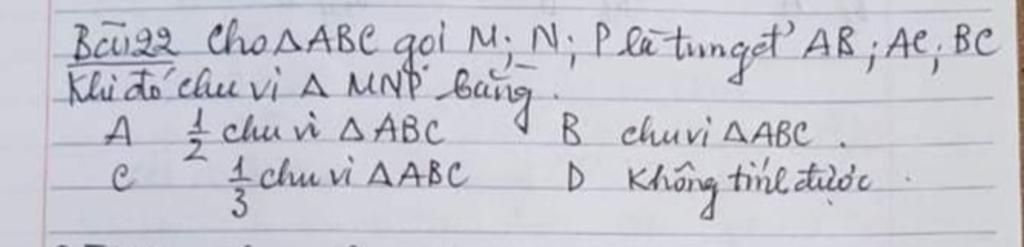 Bài 22 Cho △ABC gọi M; N; P là trung đ' AB; AC; BC
Khi đó chu vi △ MNP bằng.
A 1/2 chu vi △ABC B chu vi △ABC.
C 1/3 chu vi △ABC D Không tính được.